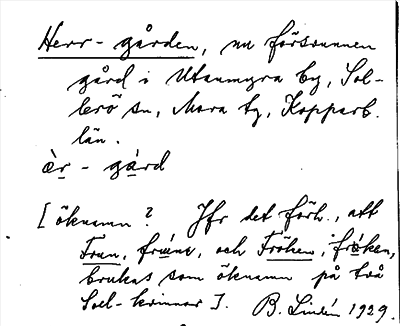 Herr-gården, nu försvunnen
gård i Utanmyra by, Sol-
lerö sn, Mora tg, Kopparb.
län.
èr - gàrd
[öknamn? Jfr det förh., att
Frun, frúne, och Fröken, frö́ken,
brukas som öknamn på två
Sol-kvinnor]. B. Lindén 1929.